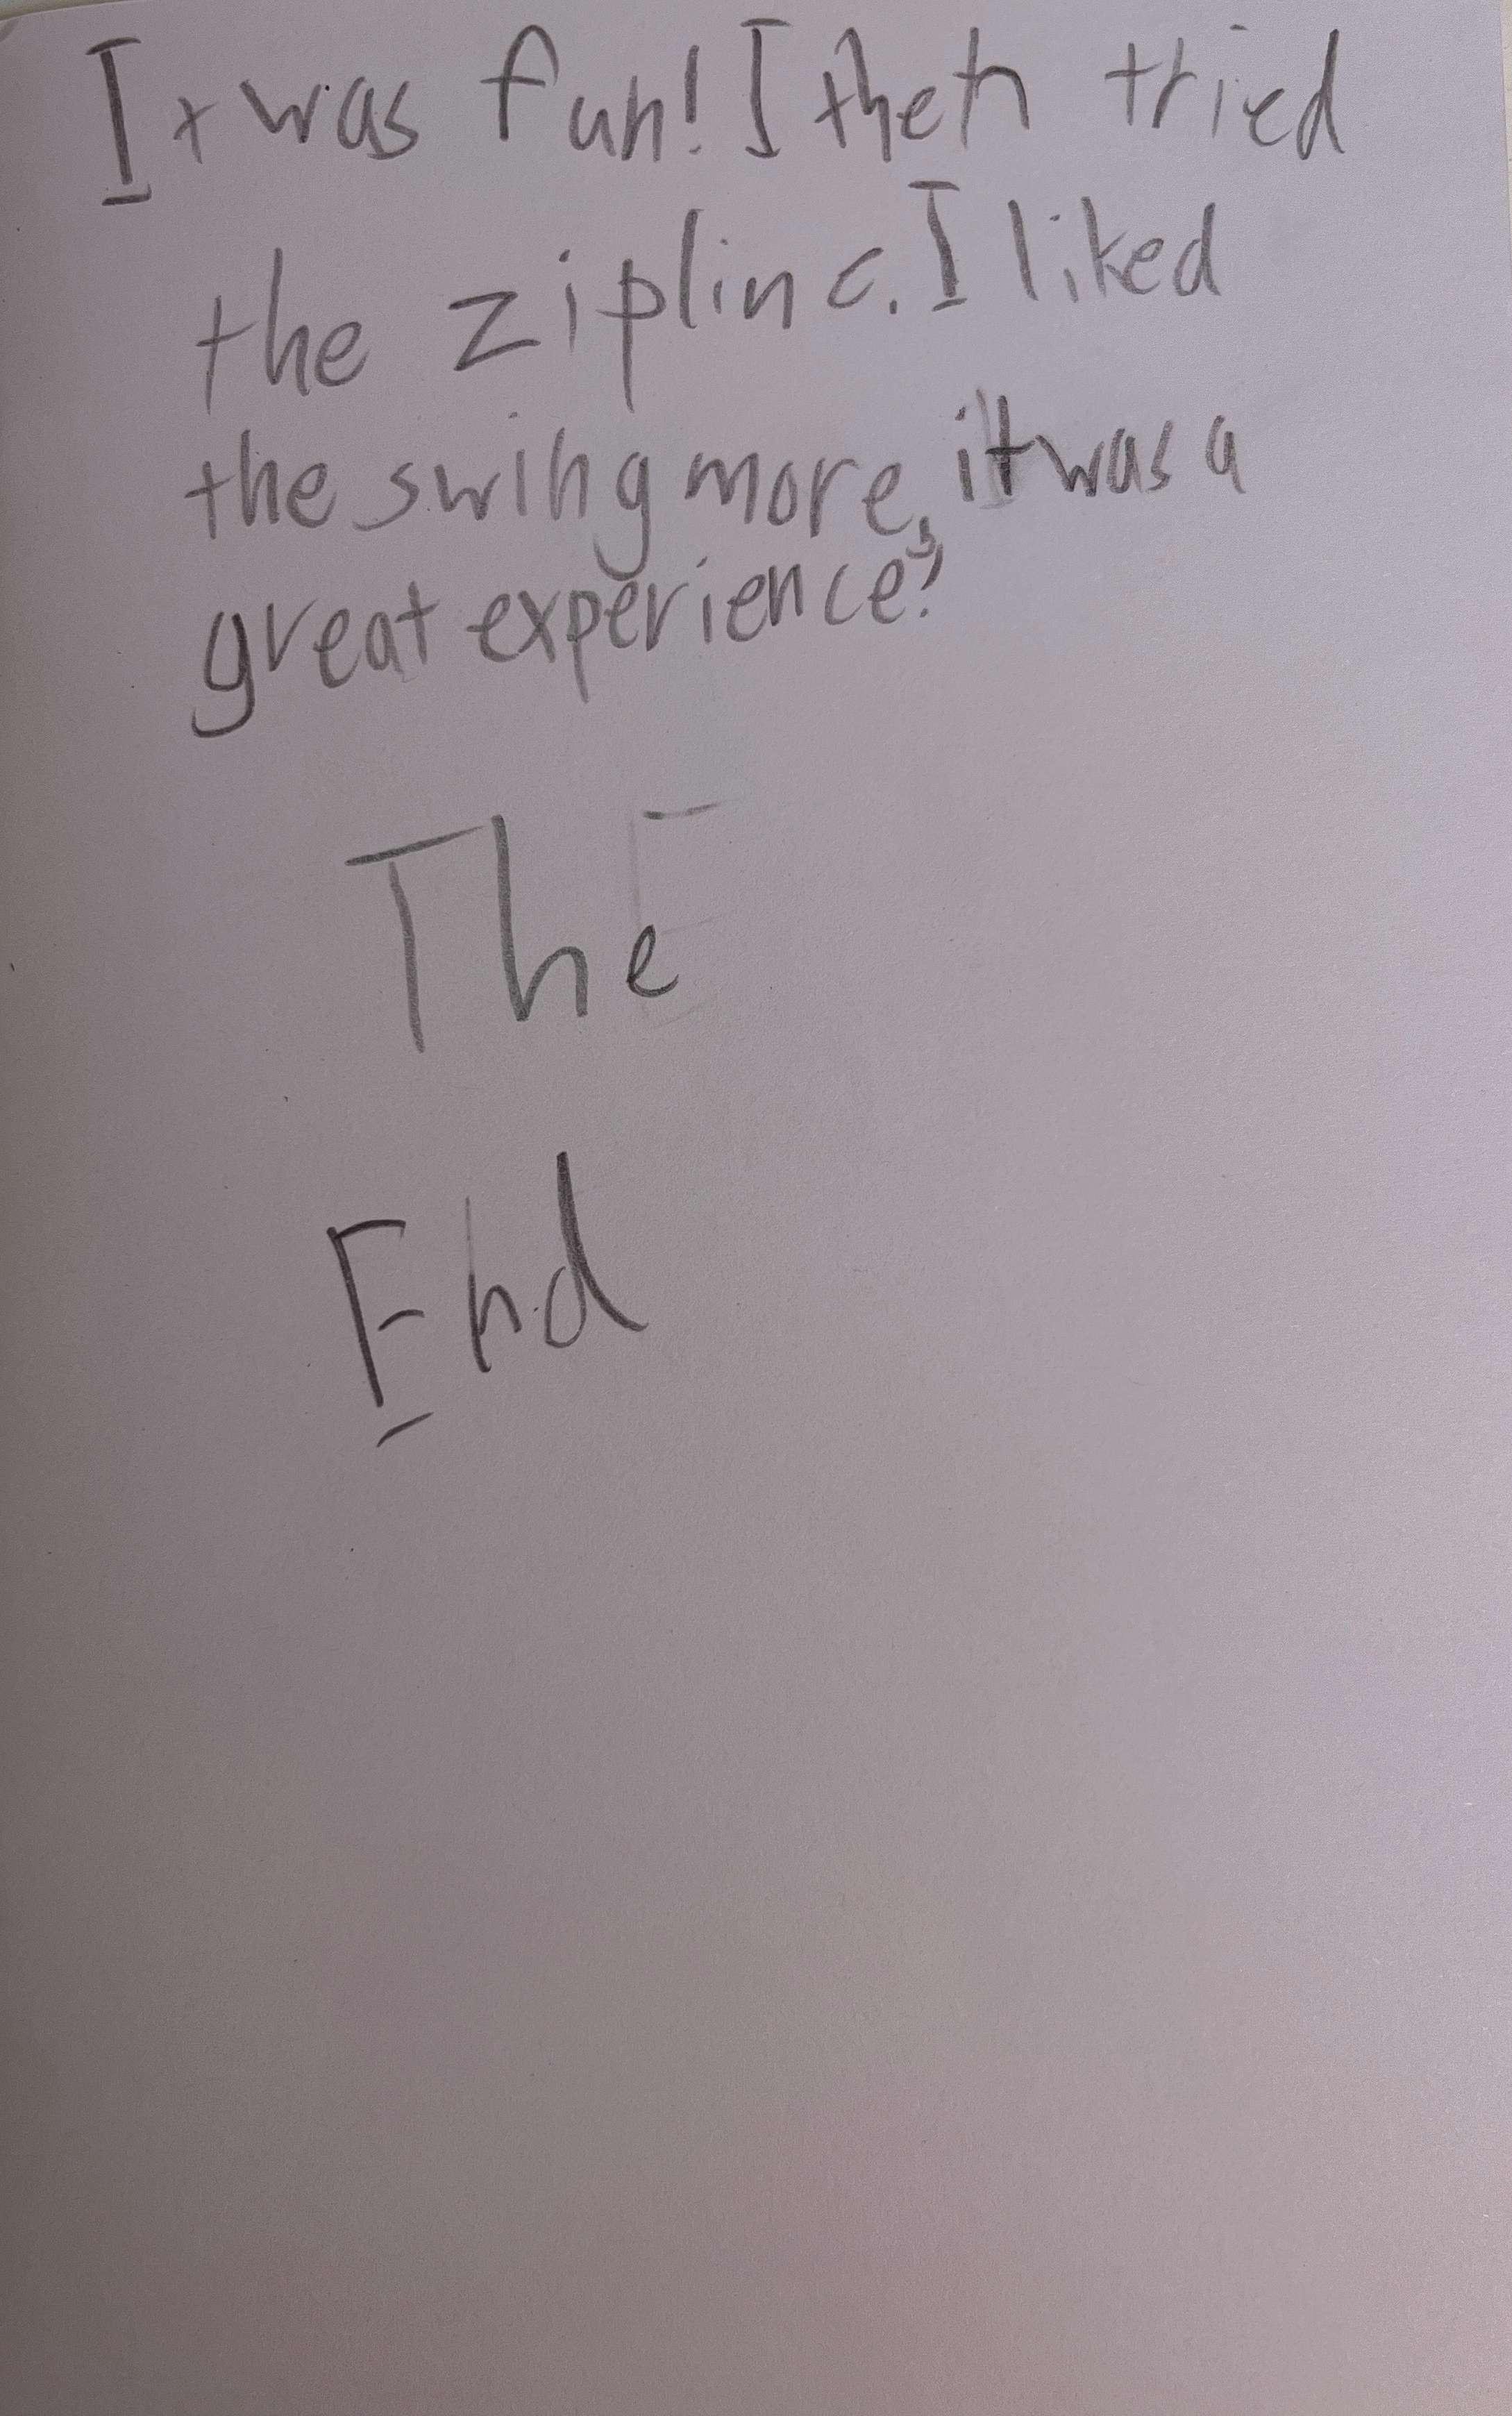 It was fun! I then tried
the zipline. I liked
the swing more, it was a
great experience!
The
End